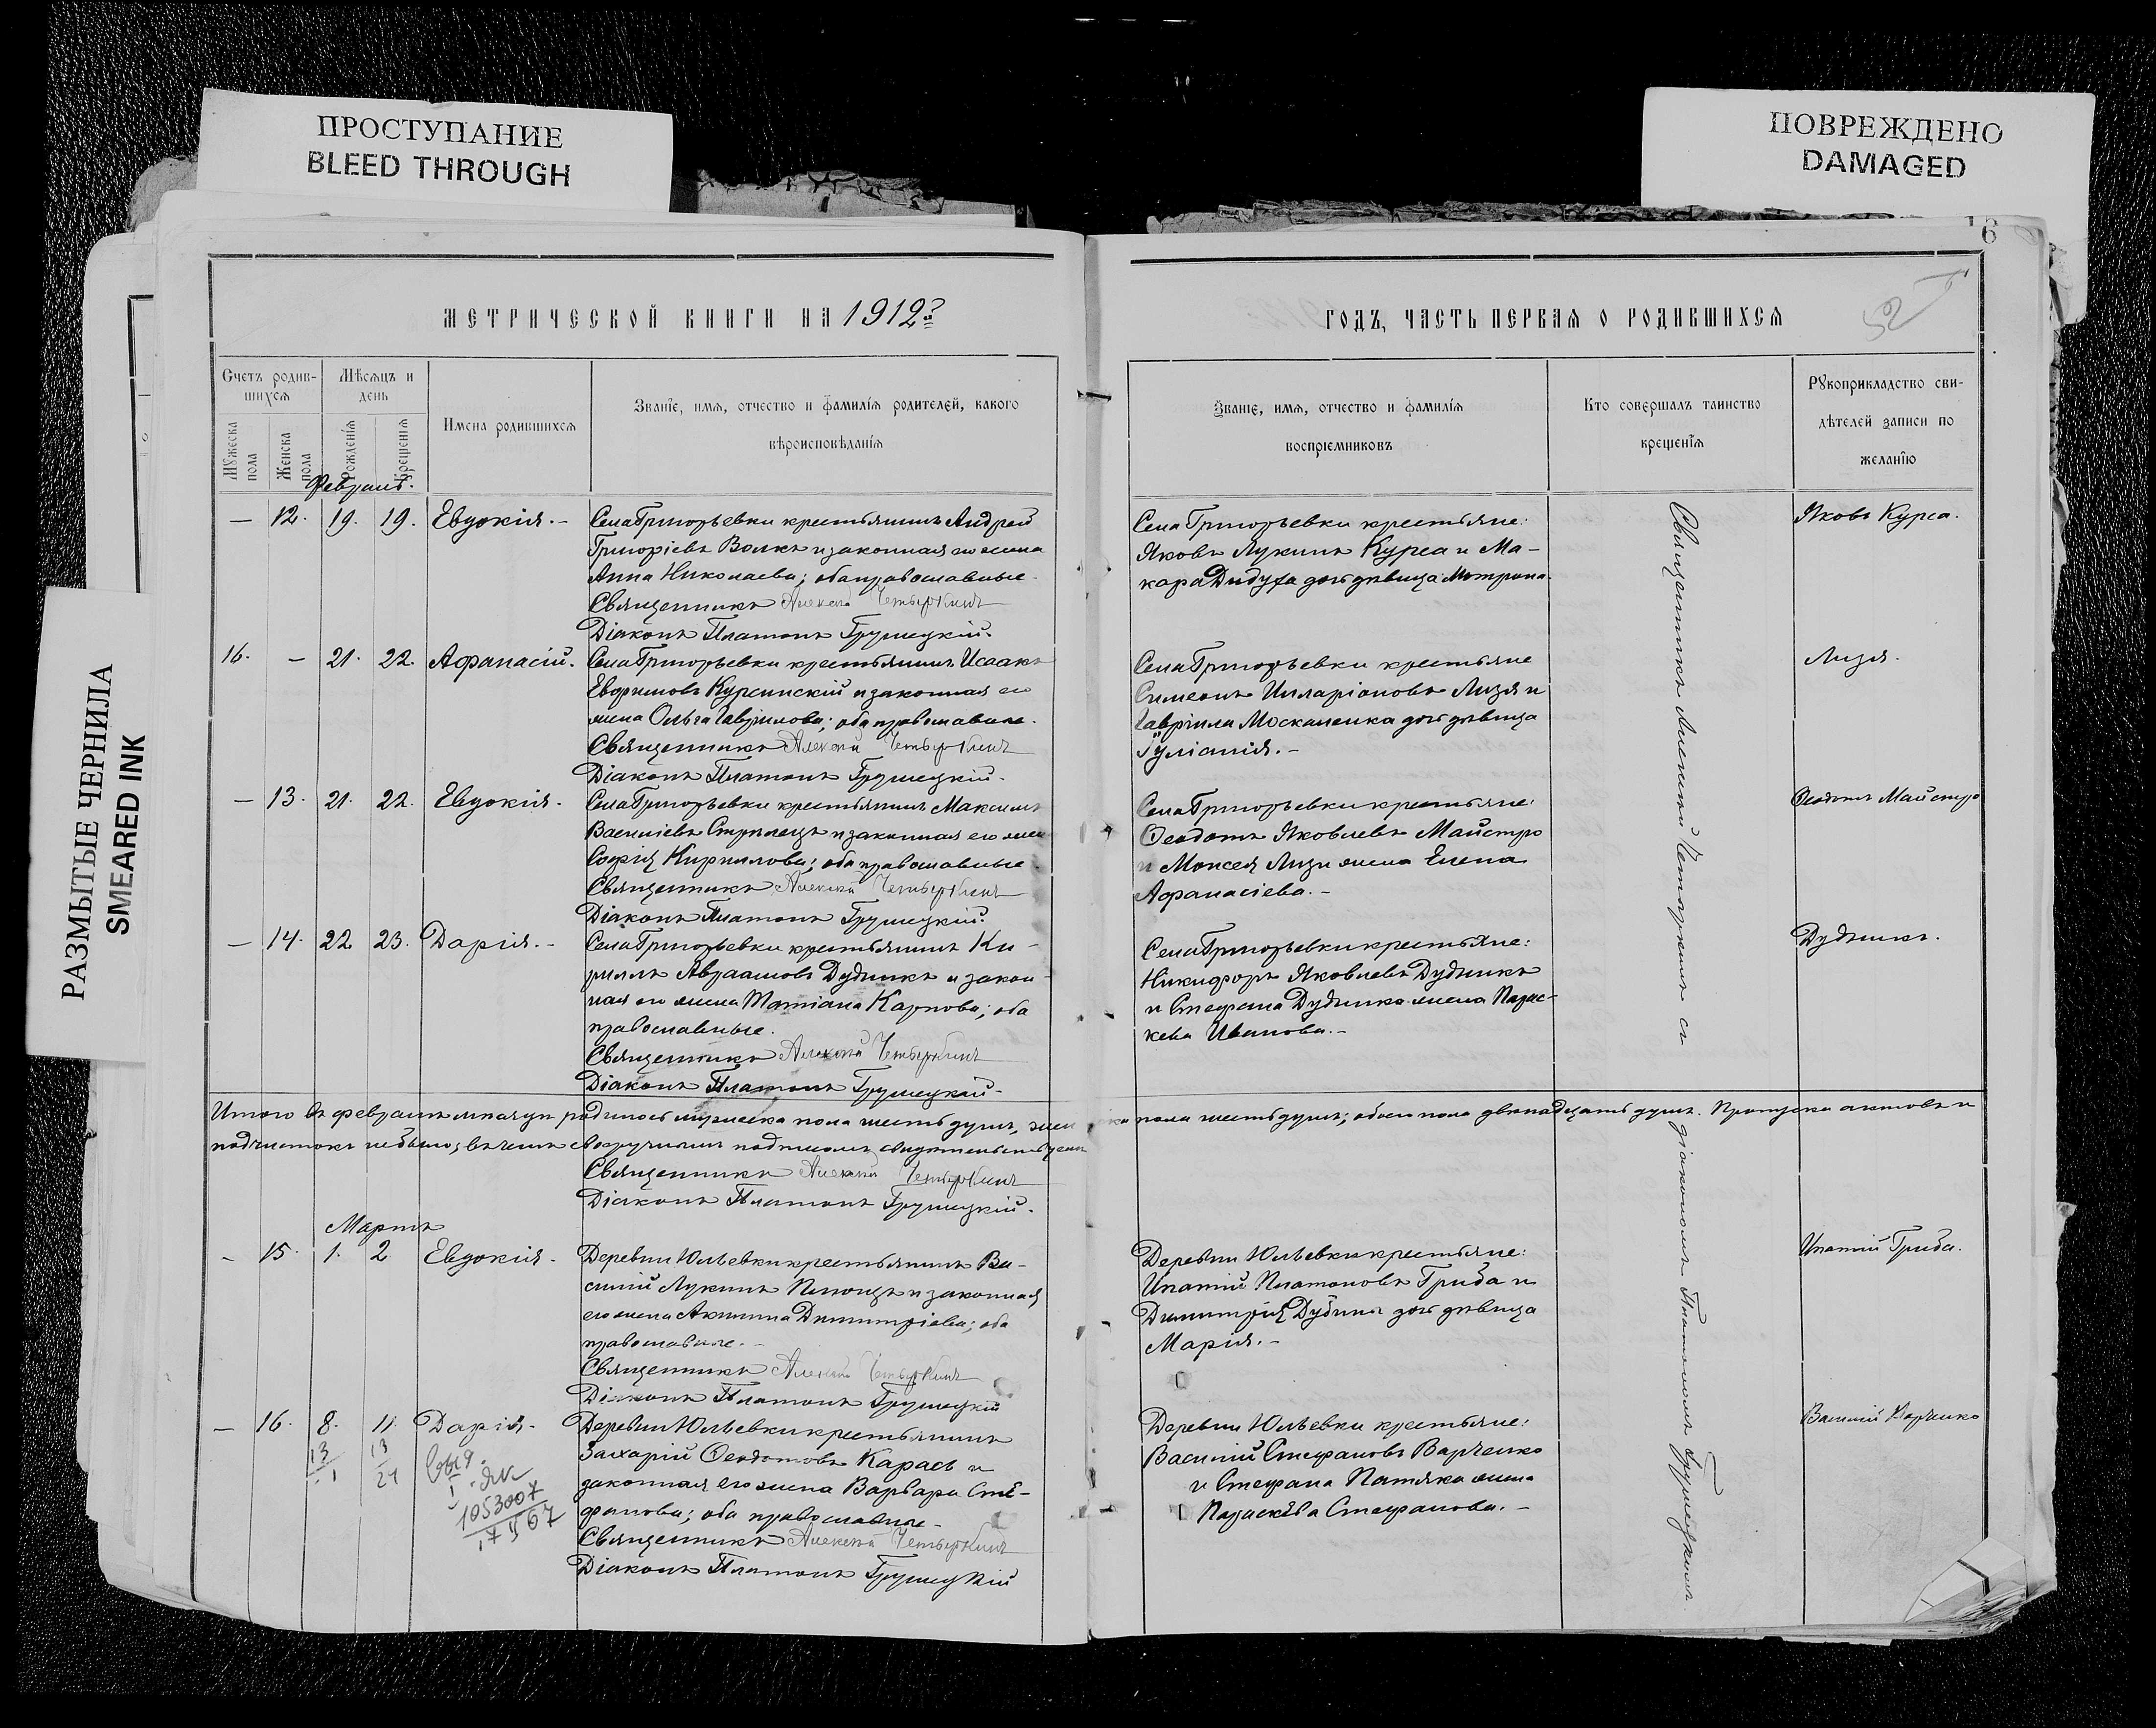 ПРОСТУПАНИЕ
BLEED THROUGH
ПОВРЕЖДЕНО
DAMAGED
РАЗМЫТЫЕ ЧЕРНИЛА
SMEARED INK
16
МЕТРИЧЕСКОЙ КНИГИ НА 1912й
Счетъ родив-
шихся
Мѣсяцъ и
день
Имена родившихся
Званіе, имя, отчество и фамилія родителей, какого
вѣроисповѣданія
Мужеска
пола
Женска
пола
Рожденія
Крещенія
Февраль.
— 12. 19. 19. Евдокія. –
Села Григорьевки крестьянинъ Андрей
Григоріевъ Волкъ и законная его жена
Анна Николаева; оба православные.
Священникъ Алексій Четыркинъ
Діаконъ Платонъ Грушецкій.
16. – 21. 22. Афанасій.
Села Григорьевки крестьянинъ Исаакъ
Евфимовъ Курсинскій и законная его
жена Ольга Гавріилова; оба православные.
Священникъ Алексій Четыркинъ
Діаконъ Платонъ Грушецкій.
— 13. 21. 22. Евдокія.
Села Григорьевки крестьянинъ Максимъ
Василіевъ Стрилецъ и законная его жена
Софія Кириллова; оба православные
Священникъ Алексій Четыркинъ
Діаконъ Платонъ Грушецкій.
— 14. 22 23. Дарія. –
Села Григорьевки крестьянинъ Ки-
риллъ Авраамовъ Дудникъ и закон-
ная его жена Татіана Карпова; оба
православные.
Священникъ Алексій Четыркинъ
Діаконъ Платонъ Грушецкій
Итого въ февралѣ мѣсяцѣ родилось мужеска пола шесть душъ, женска пола шесть душъ; обоего пола двѣнадцать душъ. Пропуска актовъ и
подчистокъ не было; въ чемъ своеручнымъ подписомъ свидѣтельствуемъ
Священникъ Алексій Четыркинъ
Діаконъ Платонъ Грушецкій.
Мартъ
– 15. 1. 2 Евдокія.
Деревни Юльевки крестьянинъ Ва-
силій Лукинъ и законная
его жена Акилина Димитріева; оба
православные.
Священникъ Алексій Четыркинъ
Діаконъ Платонъ Грушецкій
— 16. 8. 11. Дарія.
Деревни Юльевки крестьянинъ
Захарій Феодотовъ Карась и
законная его жена Варвара Сте-
фанова; оба православные
Священникъ Алексій Четыркинъ
Діаконъ Платонъ Грушецкій
1053007
ГОДЪ, ЧАСТЬ ПЕРВАЯ О РОДИВШИХСЯ
52
Званіе, имя, отчество и фамилія
воспріемниковъ
Кто совершалъ таинство
крещенія
Рукоприкладство сви-
дѣтелей записи по
желанію
Села Григорьевки крестьяне:
Яковъ Лукинъ Курса и Ма-
кара Дидуха дочь дѣвица Матрона.
Яковъ Курса.
Села Григорьевки крестьяне
Симеонъ Илларіоновъ Лизя и
Гавріила Москаленка дочь дѣвица
Іуліанія. –
Лизя.
Села Григорьевки крестьяне:
Феодотъ Яковлевъ Майстро
и Моисея Лизи жена Елена
Афанасіева. –
Феодотъ Майстро
Села Григорьевки крестьяне:
Никифоръ Яковлевъ Дудникъ
и Стефана Дудника жена Парас-
кева Иванова. –
Дудникъ.
Деревни Юльевки крестьяне:
Ипатій Платоновъ Гриба и
Димитрія Дубины дочь дѣвица
Марія. –
Ипатій Гриба.
Деревни Юльевки крестьяне:
Василій Стефановъ Варченко
и Стефана Патяка жена
Параскева Стефанова. –
Василій Варченко
Священникъ Алексій Четыркинъ съ
діакономъ Платономъ Грушецкимъ